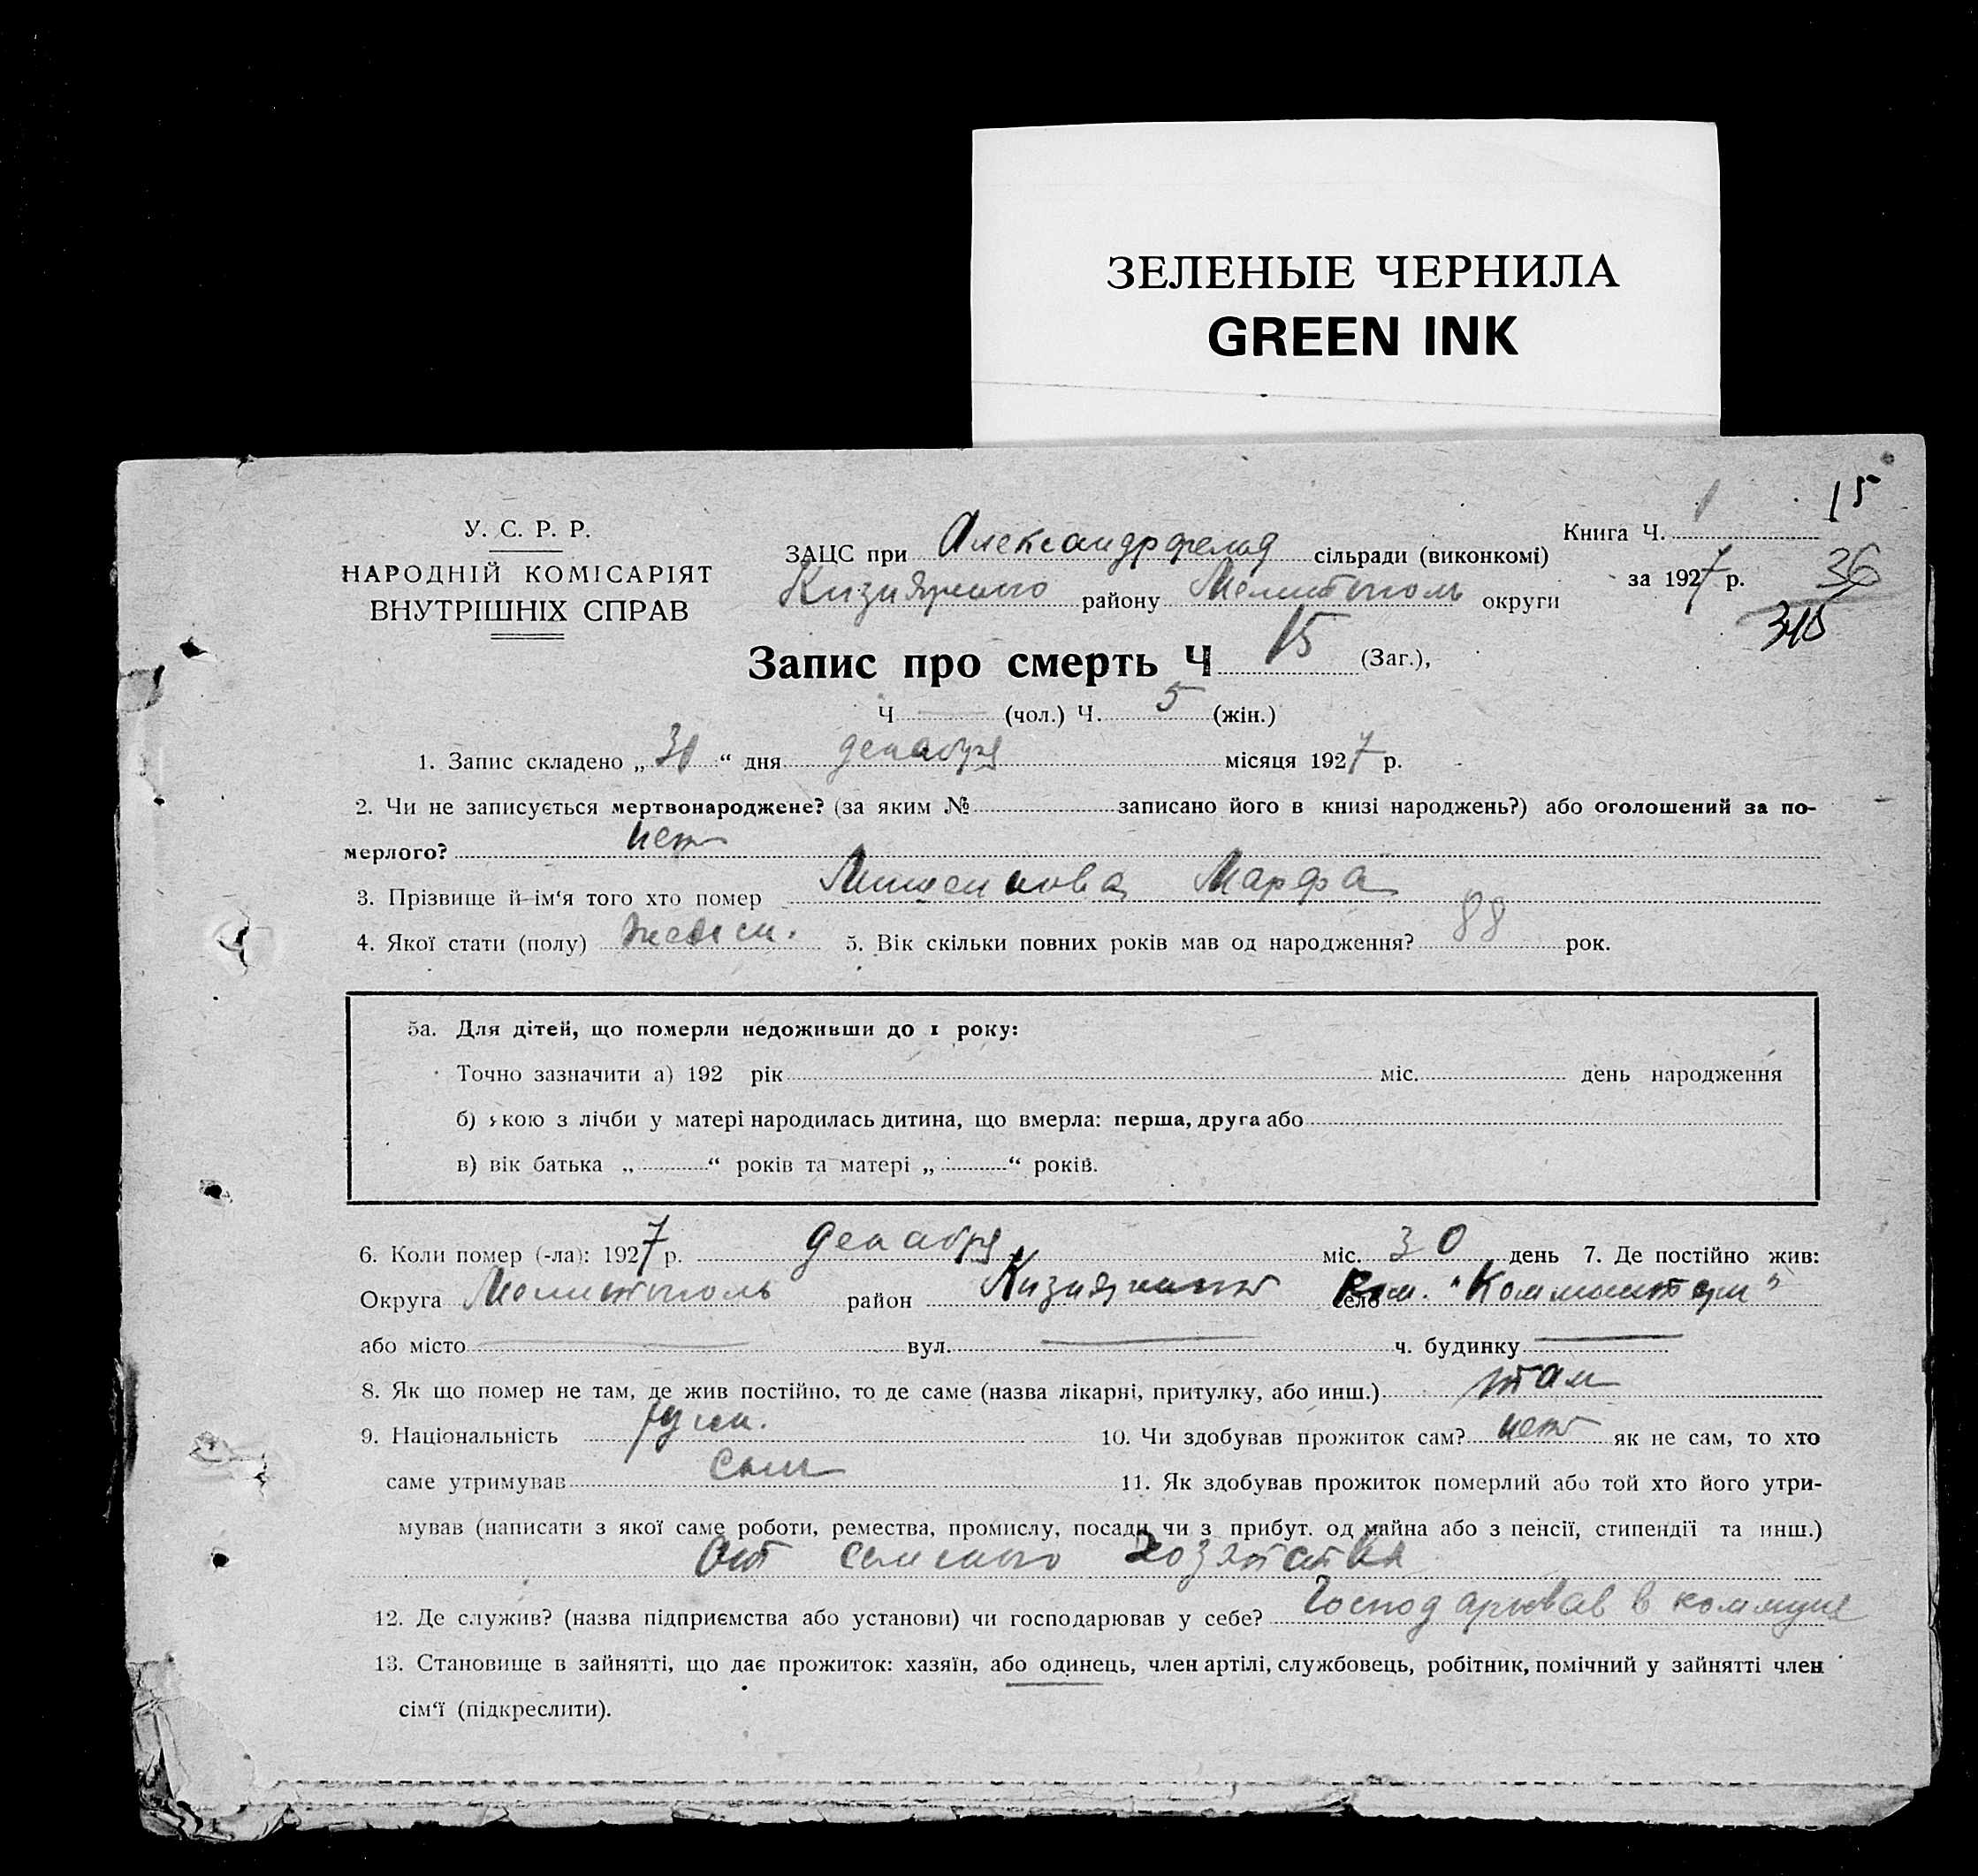 ЗЕЛЕНЫЕ ЧЕРНИЛА
GREEN INK
15
У. С. Р. Р.
НАРОДНІЙ КОМІСАРІЯТ
ВНУТРІШНІХ СПРАВ
Книга Ч. 1
ЗАЦС при Александрфельд сільради (виконкомі)
за 1927 р.
36
Кизиярского району Мелитополь округи
Запис про смерть Ч 15 (Заг.),
Ч (чол.) Ч. 5 (жін.)
1. Запис складено „ “ дня декабря місяця 1927 р.
2. Чи не записується мертвонароджене? (за яким № записано його в книзі народжень?) або оголошений за по-
мерлого? нет
3. Прізвище й ім‘я того хто помер Марфа
4. Якої стати (полу) женск. 5. Вік скільки повних років мав од народження? 88 рок.
5а. Для дітей, що померли недоживши до 1 року:
Точно зазначити а) 192 рік міс. день народження
б) кою з лічби у матері народилась дитина, що вмерла: перша, друга або
в) вік батька „ “ років та матері „ “ років.
6. Коли помер (-ла): 1927 р. декабря міс. 30 день 7. Де постійно жив:
Округа Мелитополь район Кизиярский село Ком. "Коминтерн"
або місто вул. ч. будинку
8. Як що помер не там, де жив постійно, то де саме (назва лікарні, притулку, або инш.) там
9. Національність русск. 10. Чи здобував прожиток сам? нет як не сам, то хто
саме утримував сын 11. Як здобував прожиток померлий або той хто його утри-
мував (написати з якої саме роботи, ремества, промислу, посади чи з прибут. од майна або з пенсії, стипендії та инш.)
от сельского хозяйства
12. Де служив? (назва підприємства або установи) чи господарював у себе? Господарював в коммуне
13. Становище в зайнятті, що дає прожиток: хазяїн, або одинець, член артілі, службовець, робітник, помічний у зайнятті член
сім‘ї (підкреслити).